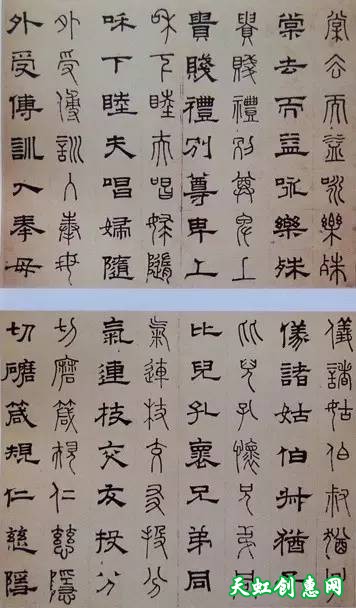 棠去而益咏樂殊
棠去而益咏樂殊
貴賤禮別尊卑上
貴賤禮別尊卑上
咊下睦夫唱婦隨
咊下睦夫唱婦隨
外受傅訓入奉母
外受傅訓入奉母
儀諸姑伯叔猶子
儀諸姑伯叔猶子
比兒孔懷兄弟同
比兒孔褱兄弟同
氣連枝交友投分
氣連枝交友投分
切磨箴規仁慈隱
切磨箴規仁慈隱
天虹创意网